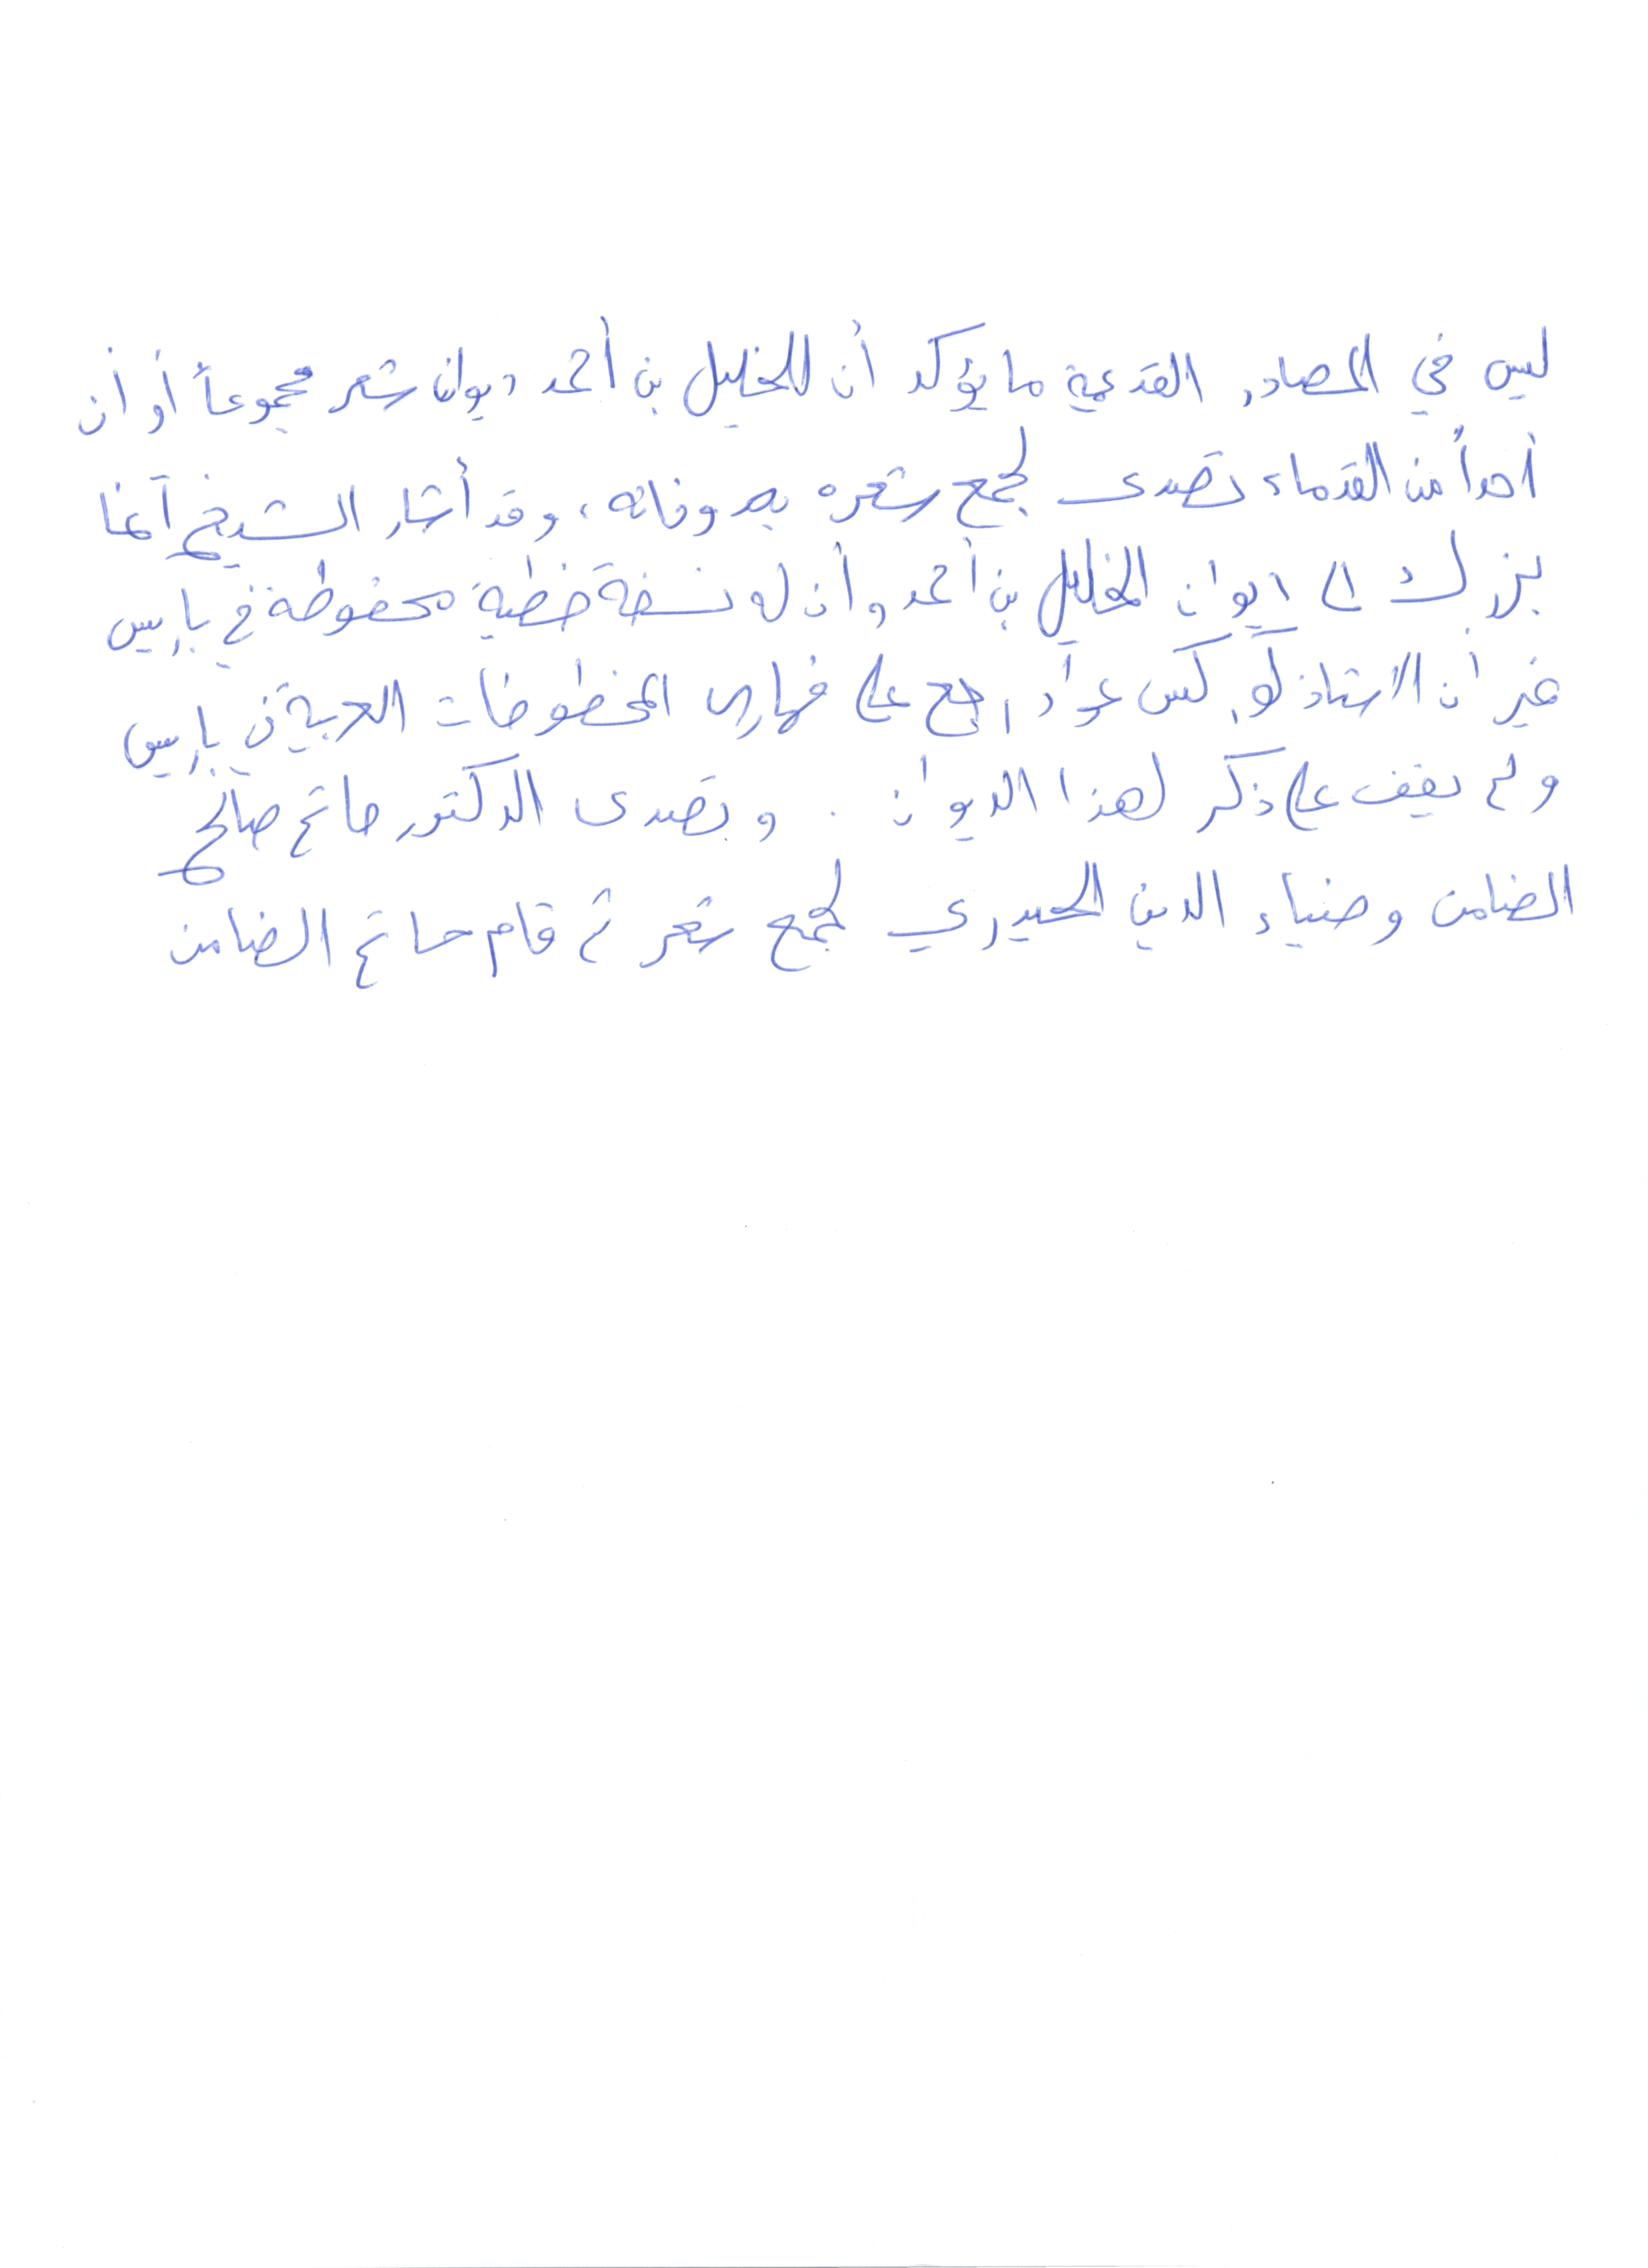 ليس في المصادر القديمة ما يؤكد أن للخليل بن أحمد ديوان شعر مجموعاً أو أن
أحداً من القدماء تصدى لجمع شعره بعد وفاته، وقد أشار الشيخ آغا
بزرك الى ديوان الخليل بن أحمد وأن له نسخة خطية محفوظة في باريس
غير أن الاستاذ كوركيس عواد راجع على فهارس المخطوطات العربية في باريس
ولم يقف على ذكر لهذا الديوان . وتصدى الدكتور حاتم صالح
الضامن وضياء الدين الحيدري لجمع شعر ثم قام حاتم الضامن